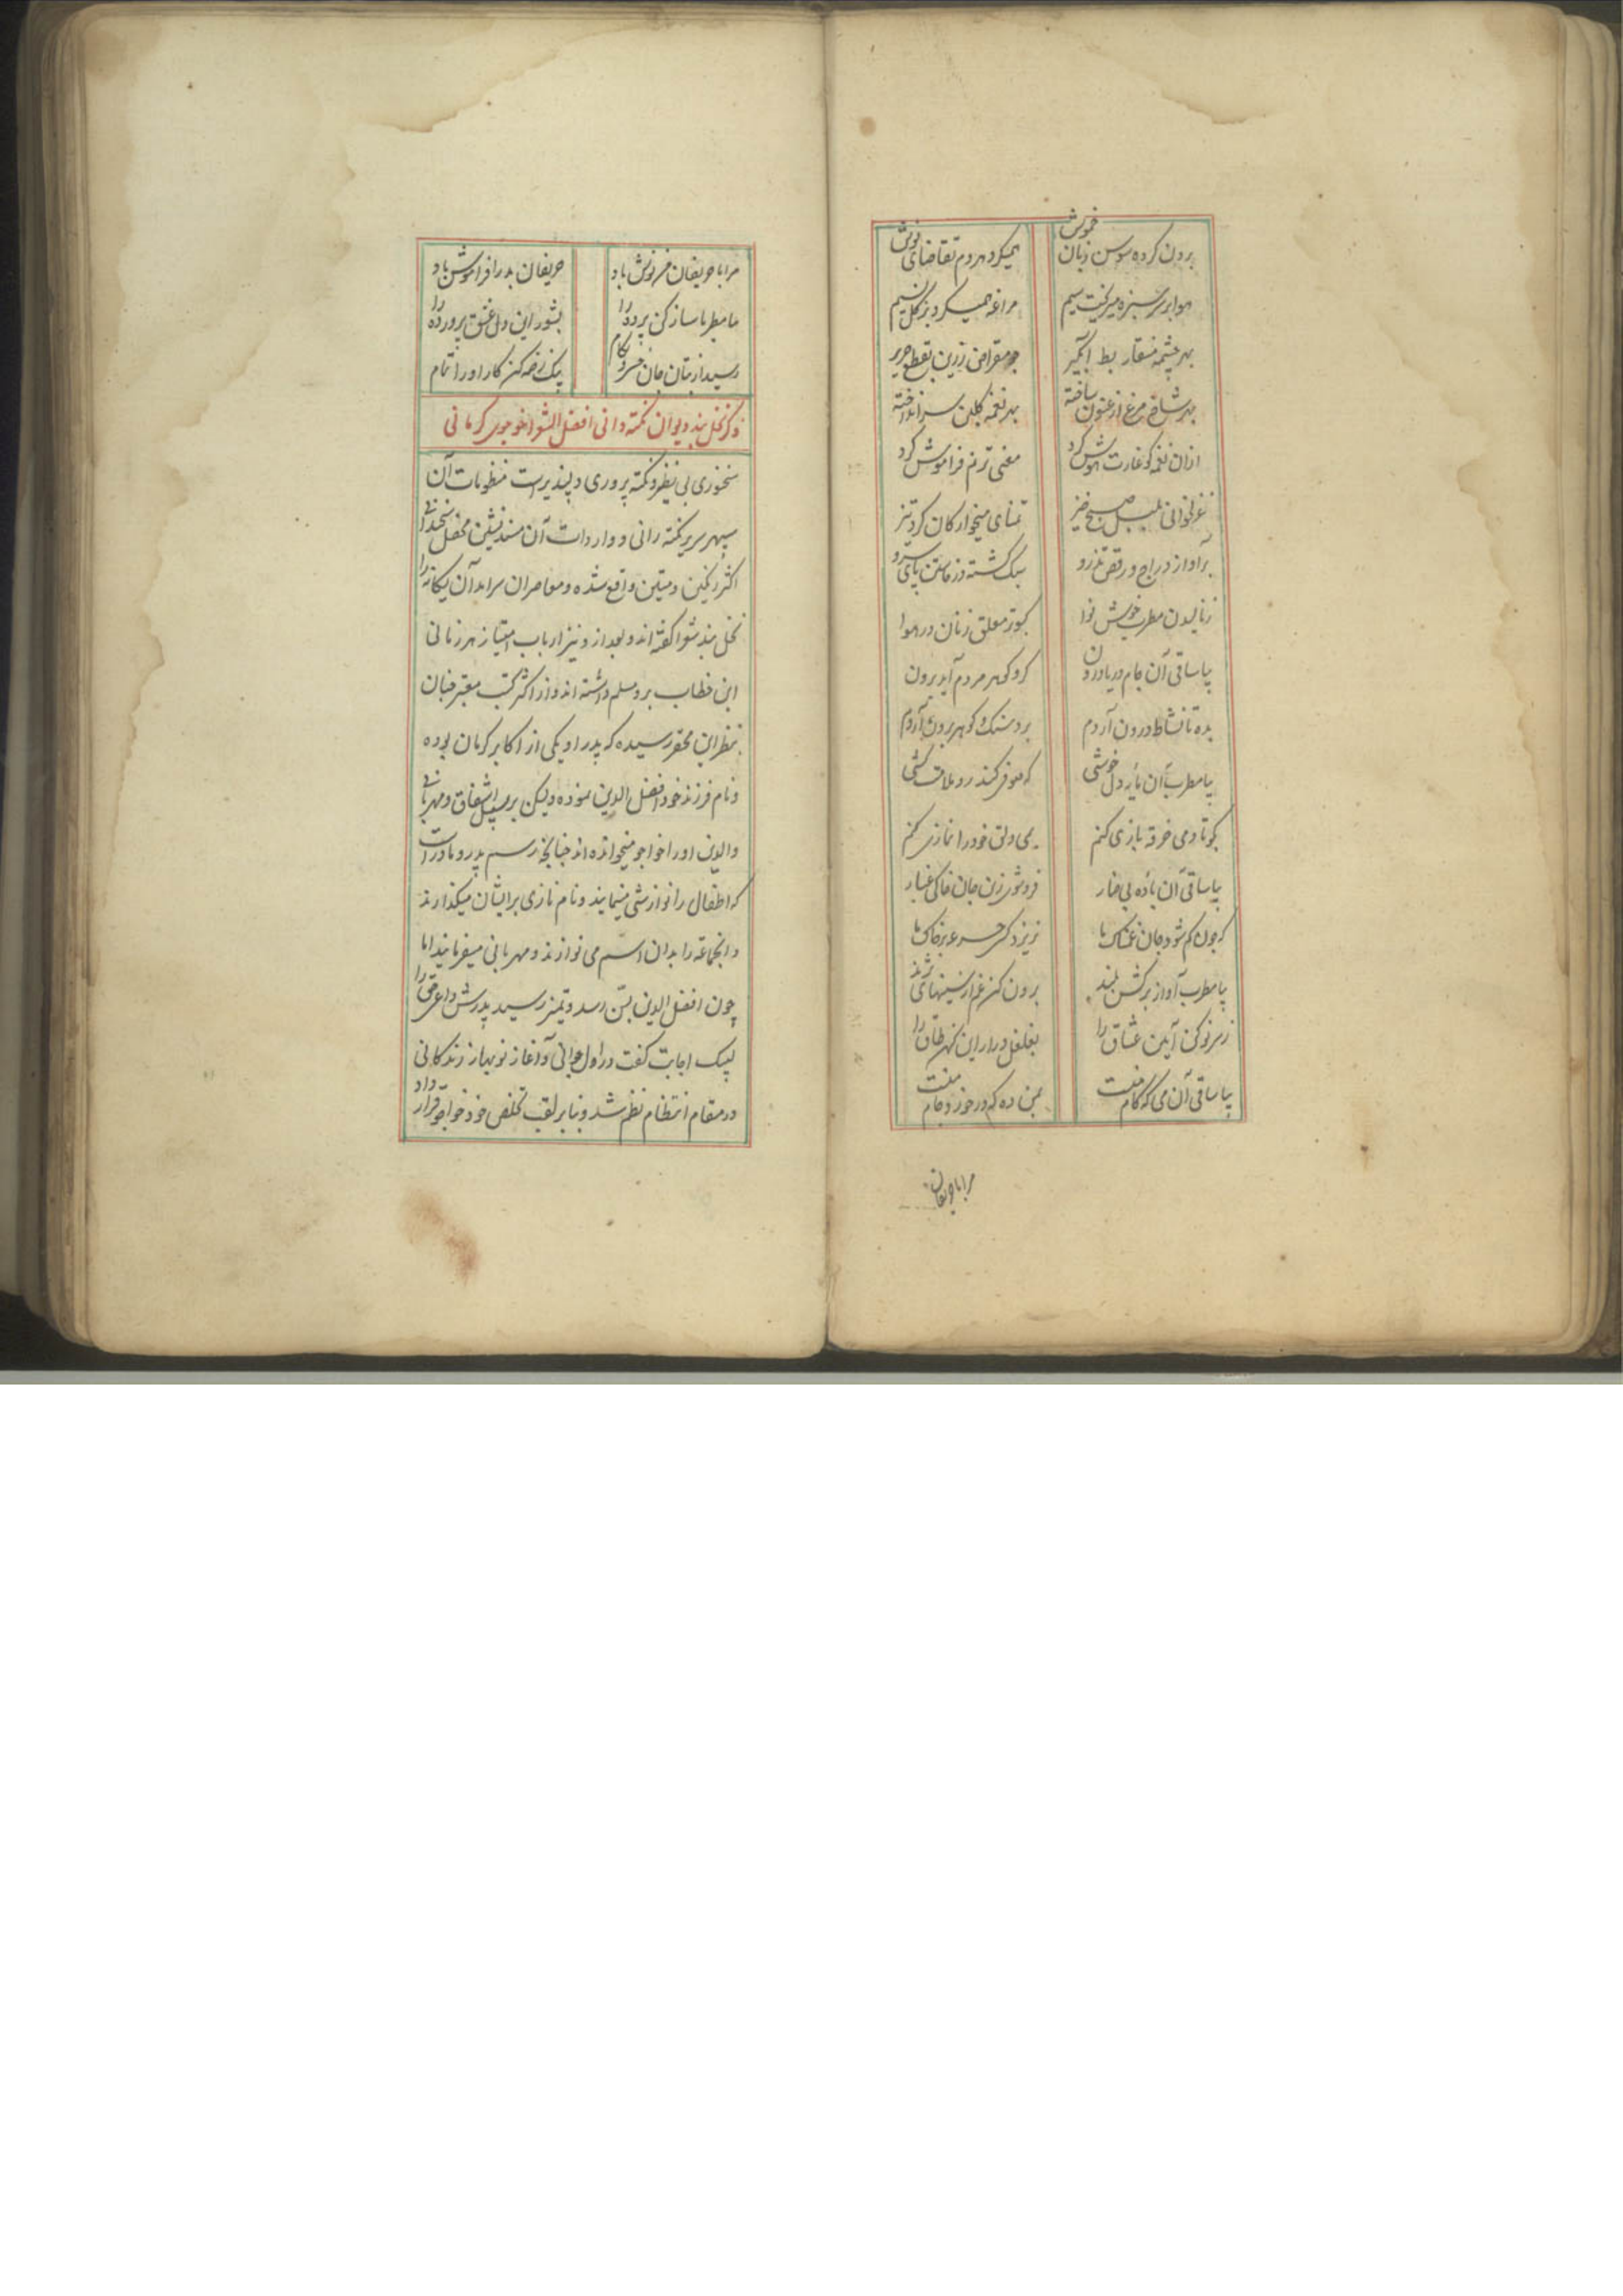 برون کرده سوسن زبان خموش همیکرد هر دم تقاضای نوش
هوا بر سر سبزه میریخت سیم مراغه همیکرد بر گل نسیم
بهر چشمه منقار بط آبگیر چو مقراض زرین بقطع حریر
بهر شاخ مرغ ارغنون ساخته بهر نغمه گلبن سر انداخته
ازان نغمه کو غارت هوش کرد مغنی ترنم فراموش کرد
غزلخوانی بلبل صبح خیز تمنای میخوارکان کرد تیز
بر آواز دراج و رقص تذرو سبک گشته در خاستن پای سرو
ز نالیدن مطرب خوش نوا کبوتر معلق زنان در هوا
بیا ساقی آن جام دریا درون کزو گوهر مردم آید برون
بده تا نشاط درون آردم برد سنک و گوهر برون آردم
بیا مطرب آن مایه دل خوشی که صوفی کند زو ملامت کشی
بگو تا دمی خرقه بازی کنم بمی دلق خود را نمازی کنم
بیا ساقی آن باده بی خمار فروشوی زین جان خاکی غبار
که چون کم شود جان غمناک ما نریزد کسی جرعه بر خاک ما
بیا مطرب آواز برکش بلند برون کن غم از سینهای نژند
ز سر نو کن آیین عشاق را بغلغل در آر این کهن طاق را
بیا ساقی آن می که کام منست بمن ده که در خورد جام منست
مرا با حریفان
مرا با حریفان من نوش باد حریفان بد را فراموش باد
بیا مطربا ساز کن پرده را بشور این دل عشق پرورده را
رسید از بتان جان خسرو بکام بیک زخمه کن کار او را تمام
ذکر نخل بند دیوان نکته دانی افضل الشعرا خواجوی کرمانی
سخنوری بی نظیر و نکته پروری دلپذیرست منظومات آن
سپهر سریر نکته رانی و واردات آن مسندنشین محفل سخندانی
اکثر رنگین و متین واقع شده و معاصران سرآمد آن یکانه را
نخل بند شعرا گفته اند و بعد از و نیز ارباب امتیاز هر زمانی
این خطاب برو مسلم داشته اند و از اکثر کتب معتبر چنان
بنظر این محقر رسیده که پدر او یکی از اکابر کرمان بوده
و نام فرزند خود افضل الدین نموده ولیکن بر سبیل اشفاق و مهربانی
والدین او را خواجو میخوانده اند چنانچه رسم پدر و مادرانست
که اطفال را نوازشی مینمایند و نام نازی بر ایشان میگذارند
و انجماعه را بدان اسم می نوازند و مهربانی میفرمایند اما
چون افضل الدین بسن رشد و تمیز رسید پدرش داعی حق را
لبیک اجابت گفت در اول جوانی و آغاز نوبهار زندگانی
در مقام انتظام نظم شد و بنا بر لقب تخلص خود خواجو قرار داد